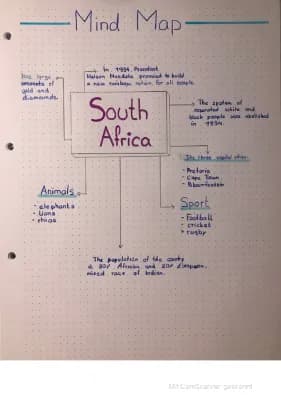 Mind Map
In 1994, President
Nelson Mandela promised to build
a new rainbow nation for all people.
has large
amounts of
gold and
diamonds.
South
Africa
The system of
separated white and
black people was abolished
in 1994.
Its three capital cities:
- Pretoria
- Cape Town
- Bloemfontein
Animals
- elephants
- lions
- rhinos
Sport
- Football
- cricket
- rugby
The population of the
is 80% African and 20%
mixed race of Indian.